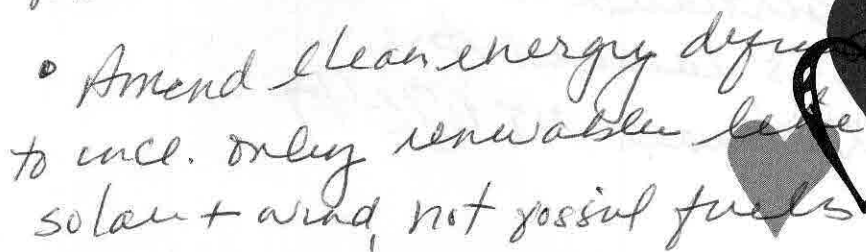 • Amend clean energy
to incl. only renewables like
solar + wind, not fossil fuels